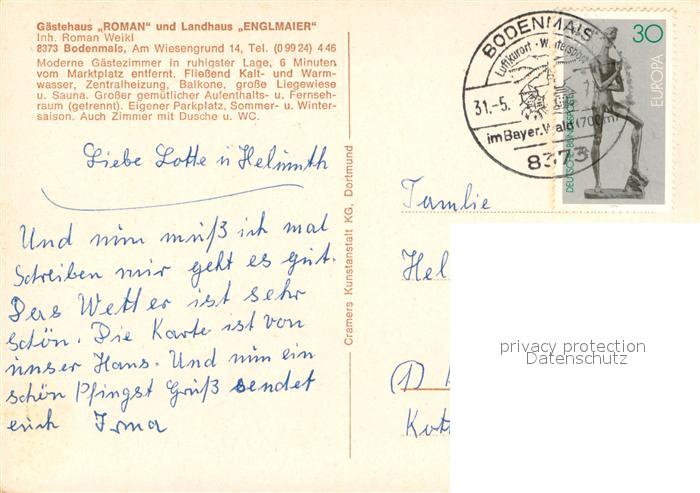 Gästehaus „ROMAN" und Landhaus „ENGLMAIER"
Inh. Roman Weikl
8373 Bodenmais, Am Wiesengrund 14, Tel. (0 99 24) 4 46
Moderne Gästezimmer in ruhigster Lage, 6 Minuten
vom Marktplatz entfernt. Fließend Kalt- und Warm-
wasser, Zentralheizung, Balkone, große Liegewiese
u. Sauna. Großer gemütlicher Aufenthalts- u. Fernseh-
raum (getrennt). Eigener Parkplatz, Sommer- u. Winter-
saison. Auch Zimmer mit Dusche u. WC.
Liebe Lotte u Helmuth
Und nun muß ich mal
Schreiben mir geht es gut.
Das Wetter ist sehr
schön. Die Karte ist von
unser Haus. Und nun ein
schön Pfingst Gruß sendet
euch Irma
Cramers Kunstanstalt KG, Dortmund
BODENMAIS
Luftkurort - Wintersport
31.-5.
im Bayer. Wald (700m)
8373
30
EUROPA
DEUTSCHE BUNDESPOST
Familie
Hel
D
privacy protection
Datenschutz